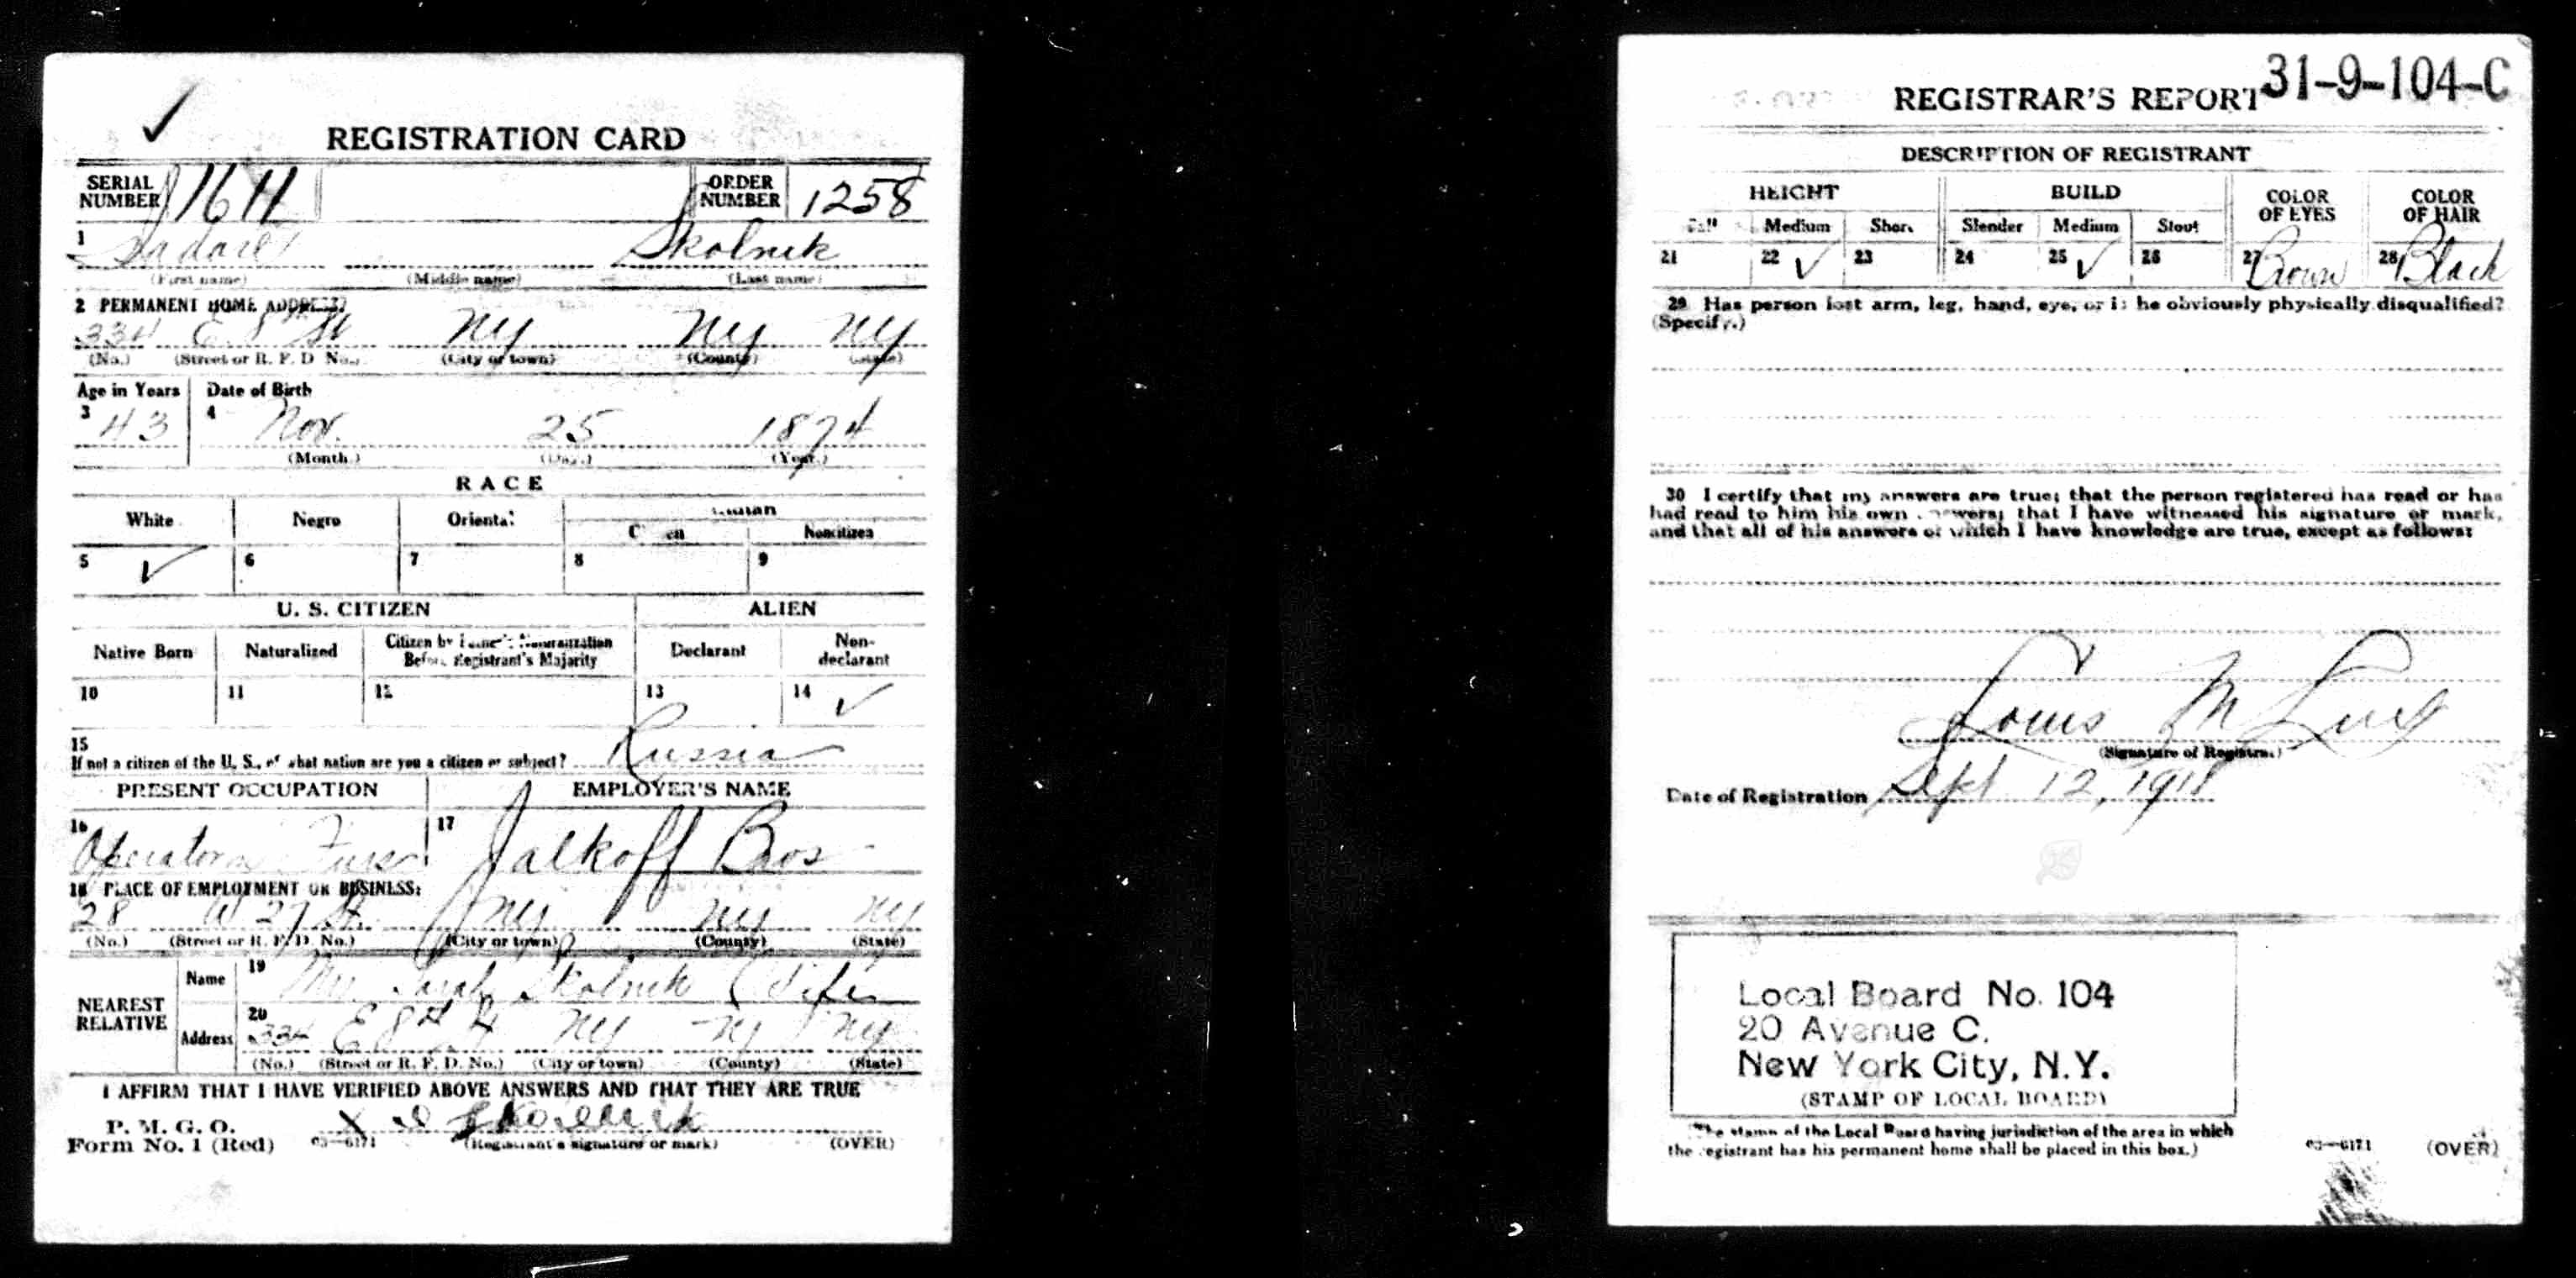 REGISTRATION CARD
SERIAL NUMBER ORDER NUMBER 1258
1 Skolnik
(First name) (Middle name) (Last name)
2 PERMANENT HOME ADDRESS:
334 E 8th St NY NY NY
(No.) (Street or R. F. D. No.) (City or town) (County) (State)
Age in Years Date of Birth
3 43 4 Nov. 25 1874
(Month.) (Day.) (Year.)
RACE
White Negro Oriental Indian
Citizen Noncitizen
5 ✓ 6 7 8 9
U. S. CITIZEN ALIEN
Native Born Naturalized Citizen by Father's Naturalization Before Registrant's Majority Declarant Non-declarant
10 11 12 13 14 ✓
15 Russia
If not a citizen of the U. S., of what nation are you a citizen or subject?
PRESENT OCCUPATION EMPLOYER'S NAME
16 Operator Furs 17 Jalkoff Bros
18 PLACE OF EMPLOYMENT OR BUSINESS:
28 W 27 St. NY NY NY
(No.) (Street or R. F. D. No.) (City or town) (County) (State)
NEAREST RELATIVE
Name 19 Mrs. Sarah Skolnik (Wife)
Address 20 334 E 8th St NY NY NY
(No.) (Street or R. F. D. No.) (City or town) (County) (State)
I AFFIRM THAT I HAVE VERIFIED ABOVE ANSWERS AND THAT THEY ARE TRUE
P. M. G. O. X
Form No. 1 (Red) 03—6171 (Registrant's signature or mark) (OVER)
31-9-104-C
REGISTRAR'S REPORT
DESCRIPTION OF REGISTRANT
HEIGHT BUILD COLOR OF EYES COLOR OF HAIR
Tall Medium Short Slender Medium Stout
21 22 ✓ 23 24 25 ✓ 26 27 Brown 28 Black
29 Has person lost arm, leg, hand, eye, or is he obviously physically disqualified?
(Specify.)
30 I certify that my answers are true; that the person registered has read or has
had read to him his own answers; that I have witnessed his signature or mark,
and that all of his answers of which I have knowledge are true, except as follows:
Louis M
(Signature of Registrar)
Date of Registration Sept 12, 1918
Local Board No. 104
20 Avenue C.
New York City, N.Y.
(STAMP OF LOCAL BOARD)
(The stamp of the Local Board having jurisdiction of the area in which
the registrant has his permanent home shall be placed in this box.)
03—6171 (OVER)